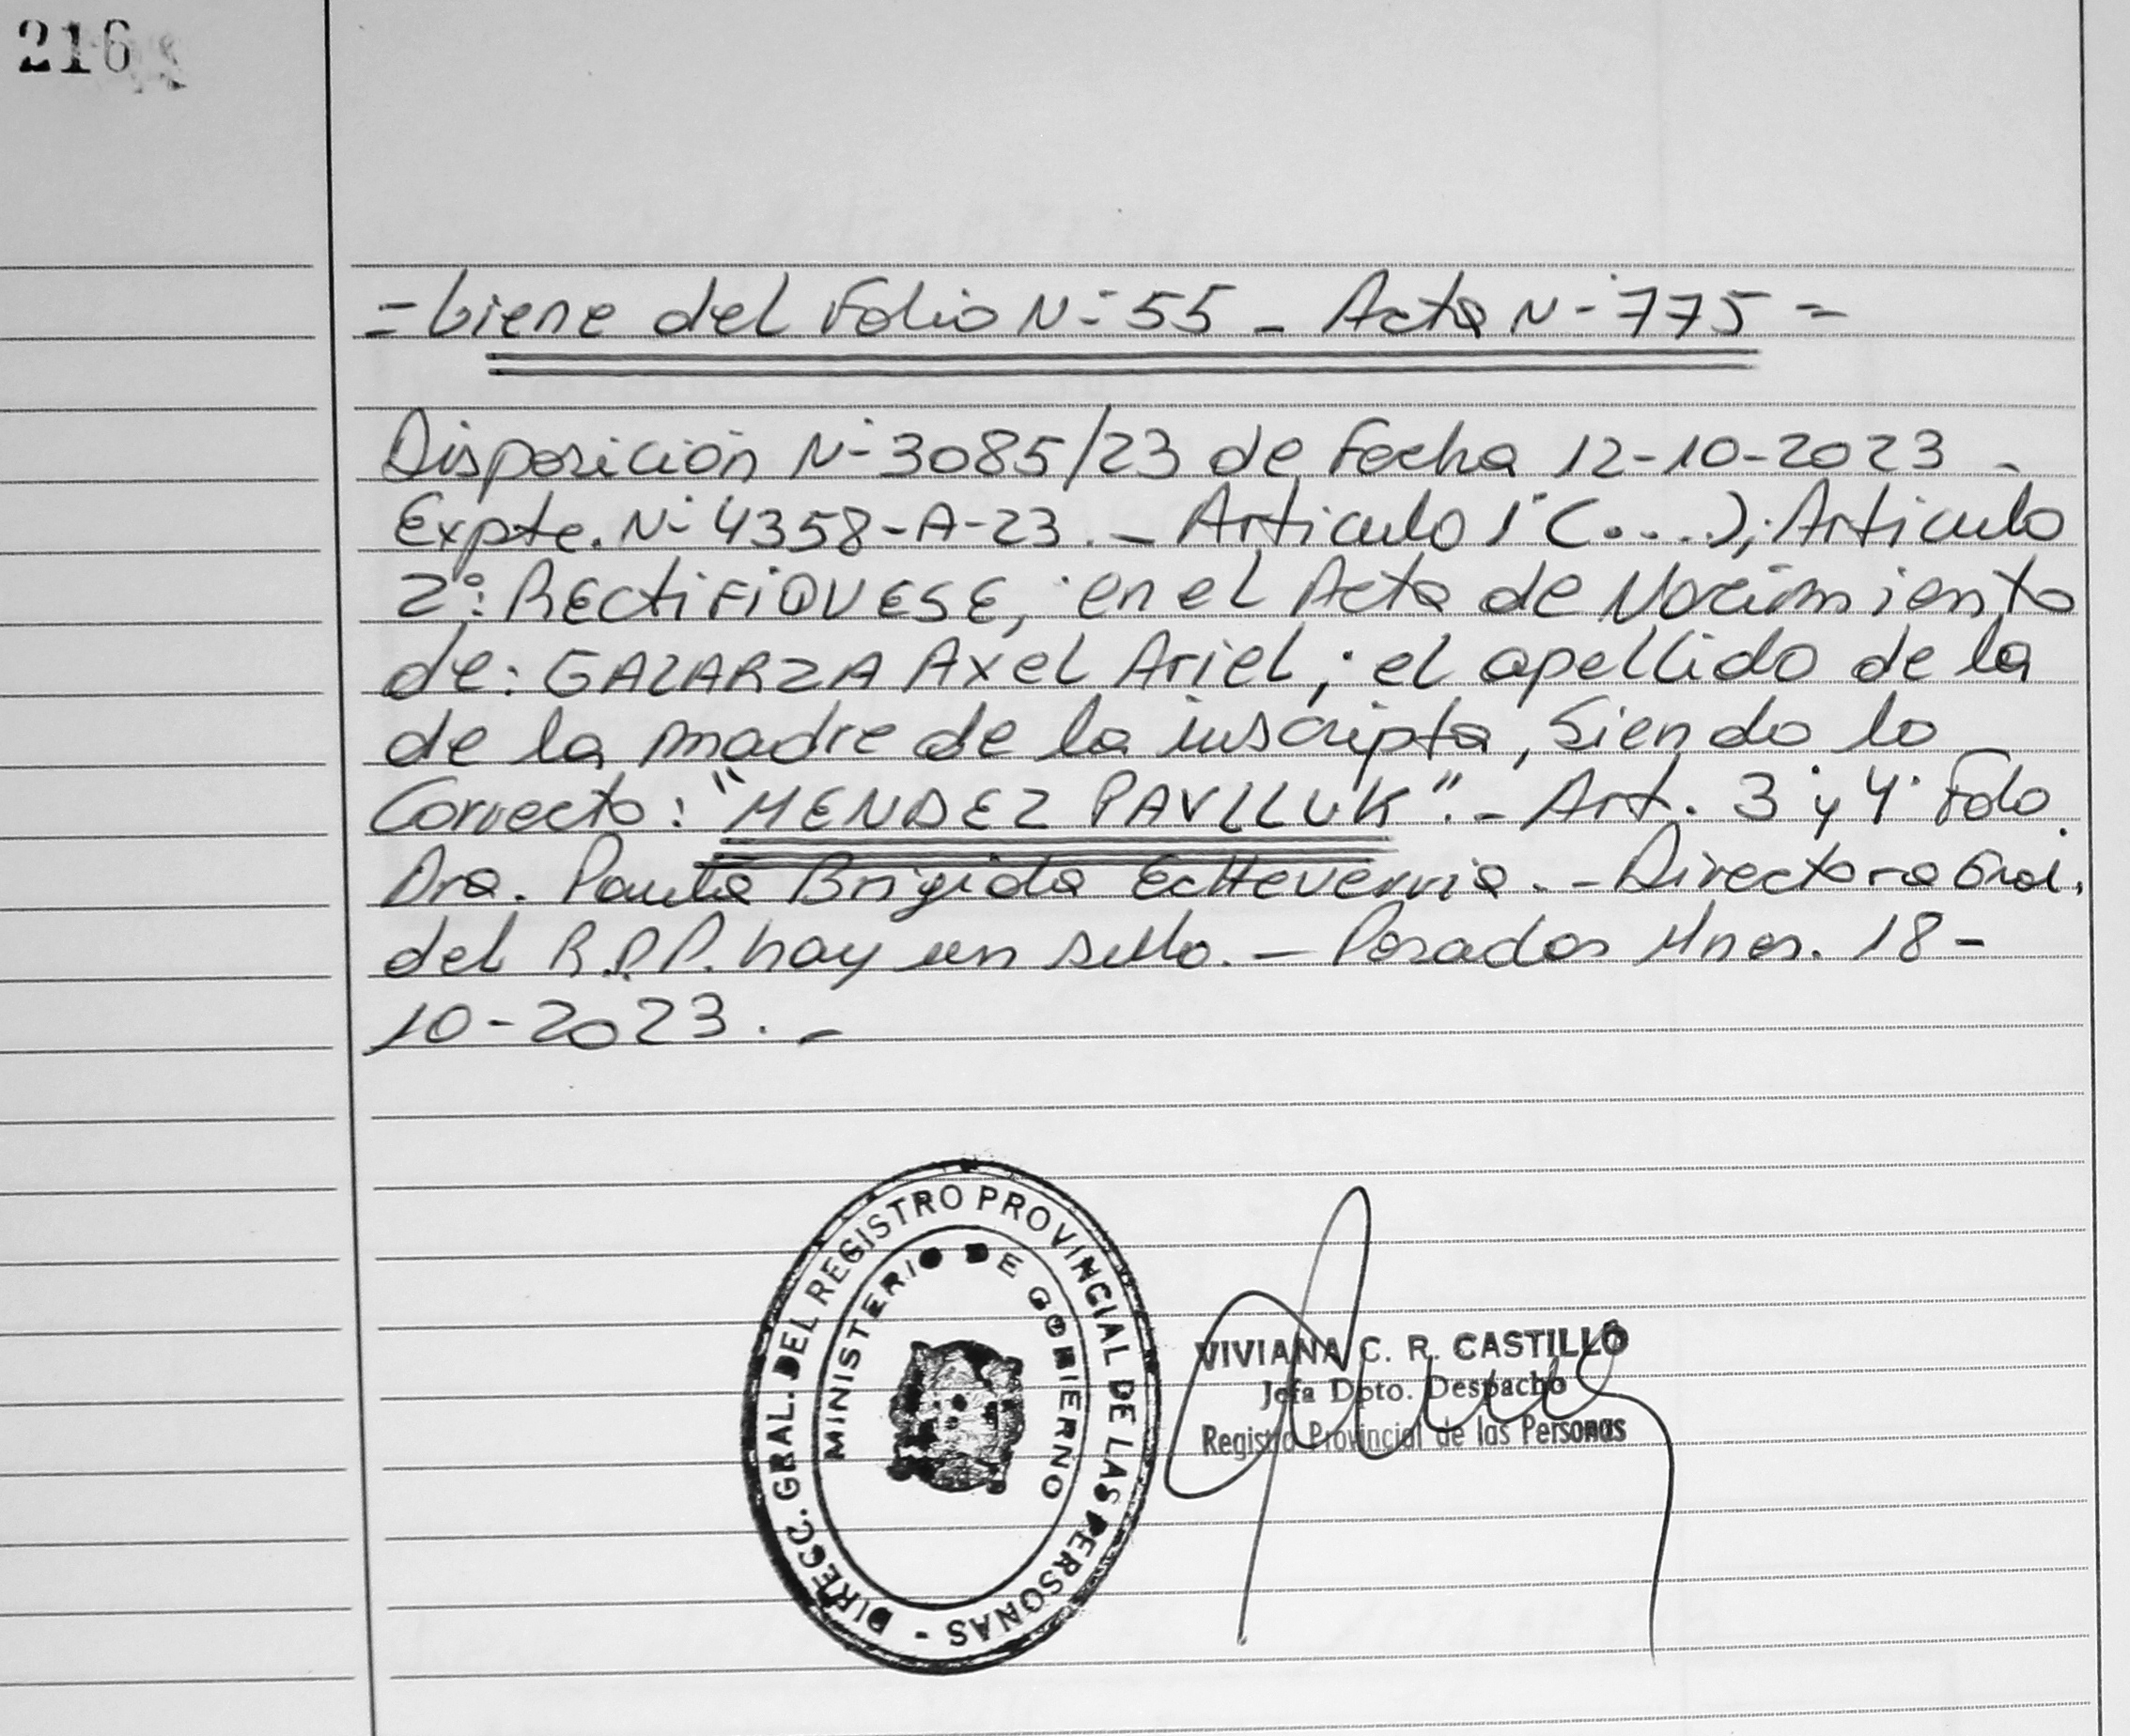 216
= biene del Folio N- 55 - Acta N- 775 =
Disposición N- 3085/23 de Fecha 12-10-2023 -
Expte. N- 4358-A-23. - Articulo 1° (....); Articulo
2°: RECtiFiQUESE, en el Acta de Nacimiento
de: GALARZA Axel Ariel; el apellido de la
de la madre de la inscripta, Siendo lo
Correcto: "MENDEZ PAVLLUK". - Art. 3° y 4° Fdo.
Dra. Paula Brigida Echeverria. - Directora Gral.
del R.P.P. hay un sello. - Posadas Mnes. 18 -
10-2023. -
DIRECC. GRAL. DEL REGISTRO PROVINCIAL DE LAS PERSONAS -
MINISTERIO DE GOBIERNO
VIVIANA C. R. CASTILLO
Jefa Dpto. Despacho
Registro Provincial de las Personas